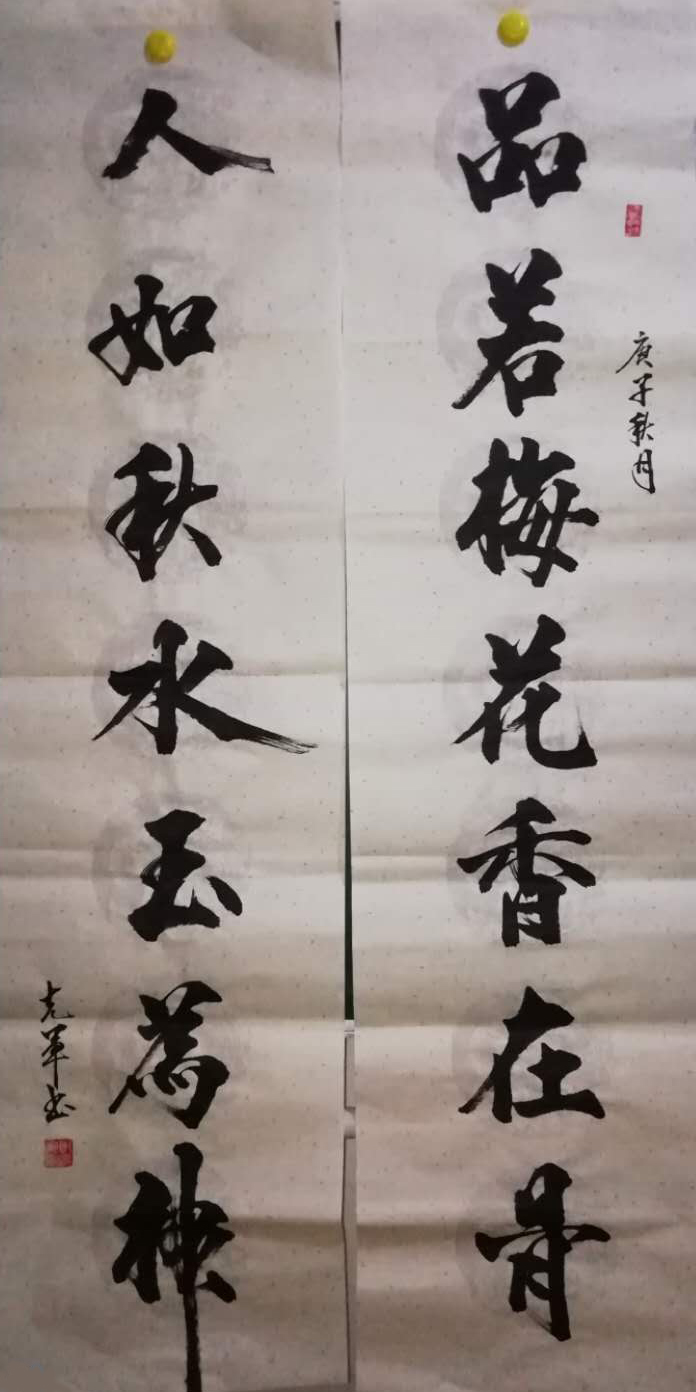 品若梅花香在骨
庚子秋月
人如秋水玉為神
克軍书